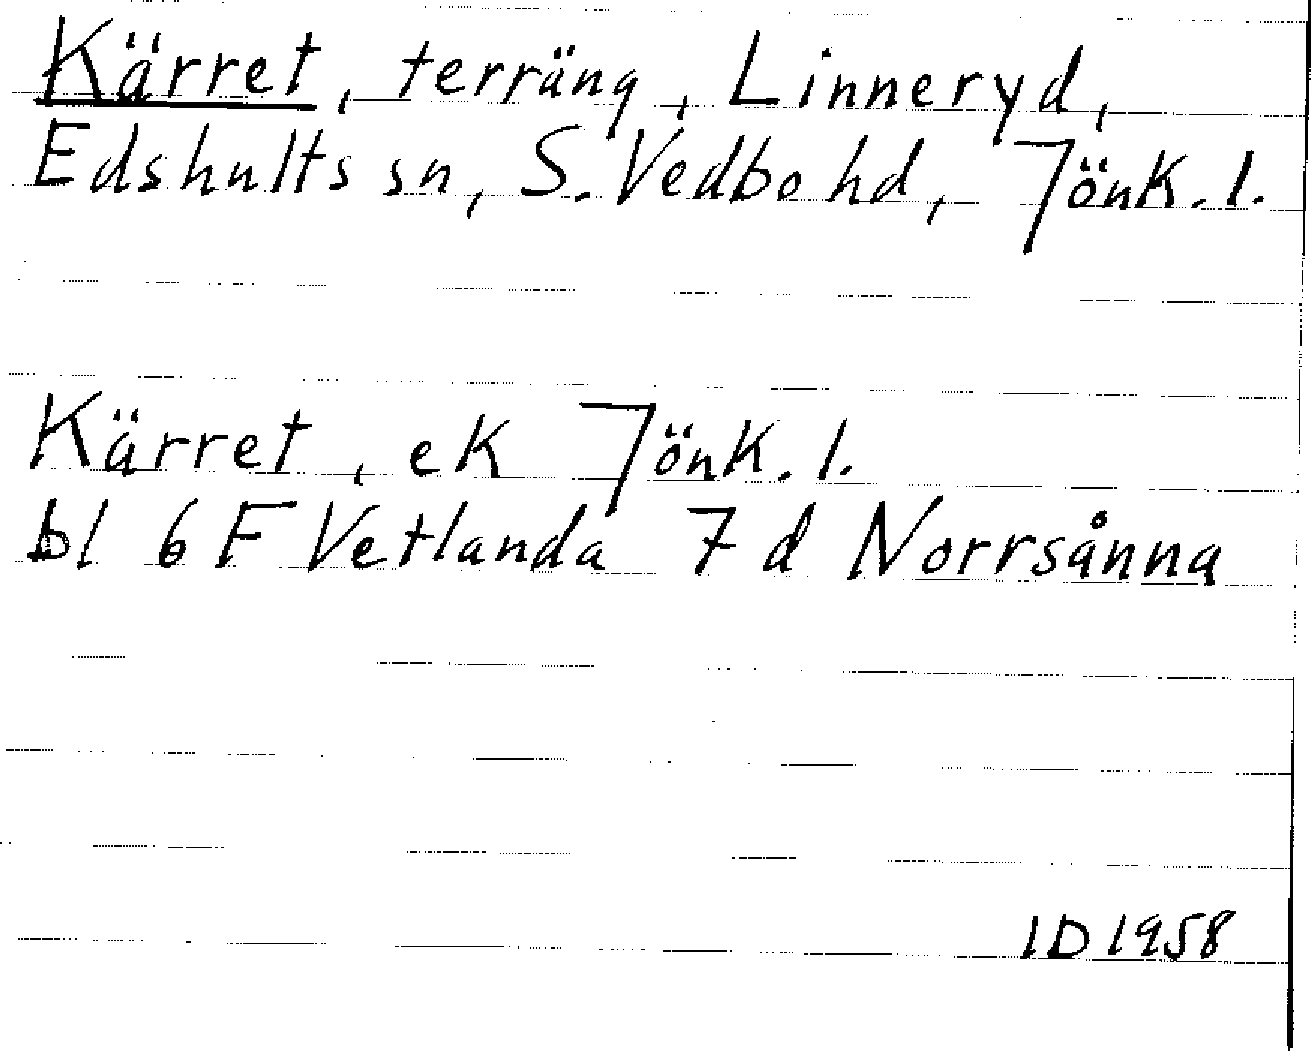 Kärret, terräng, Linneryd,
Edshults sn, S. Vedbo hd, Jönk. l.
Kärret, ek Jönk. l.
bl 6 F Vetlanda 7 d Norrsånna
ID 1958